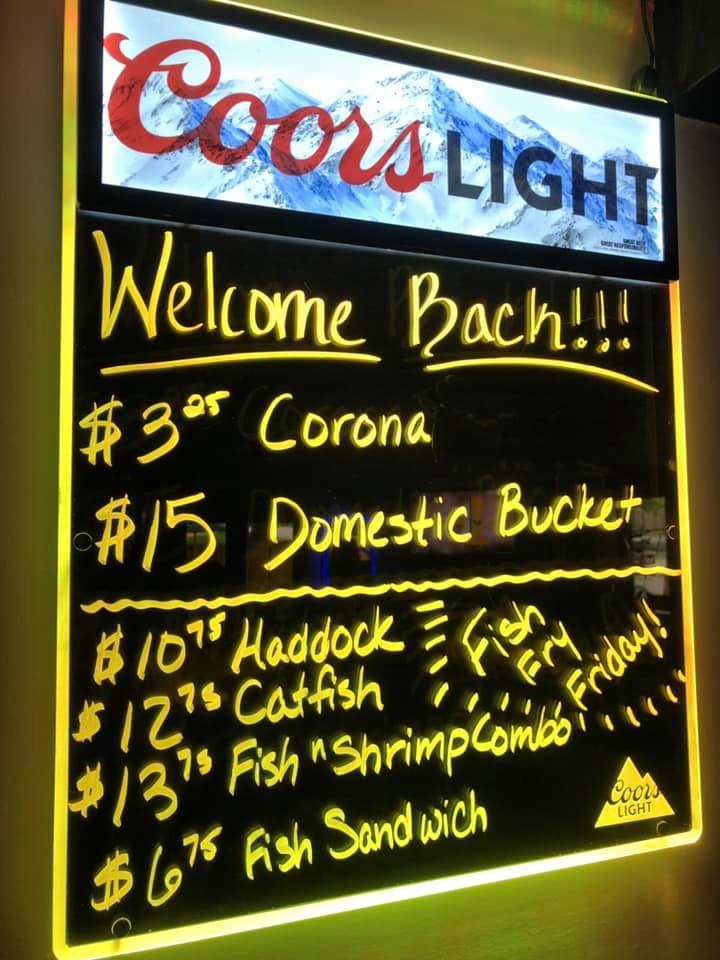 Coors LIGHT
Welcome Back!!!
$3.25 Corona
$15 Domestic Bucket
$10.75 Haddock
$12.75 Catfish
$13.75 Fish "n" Shrimp Combo
$6.75 Fish Sandwich
Fish
Fry
Friday!
Coors
LIGHT